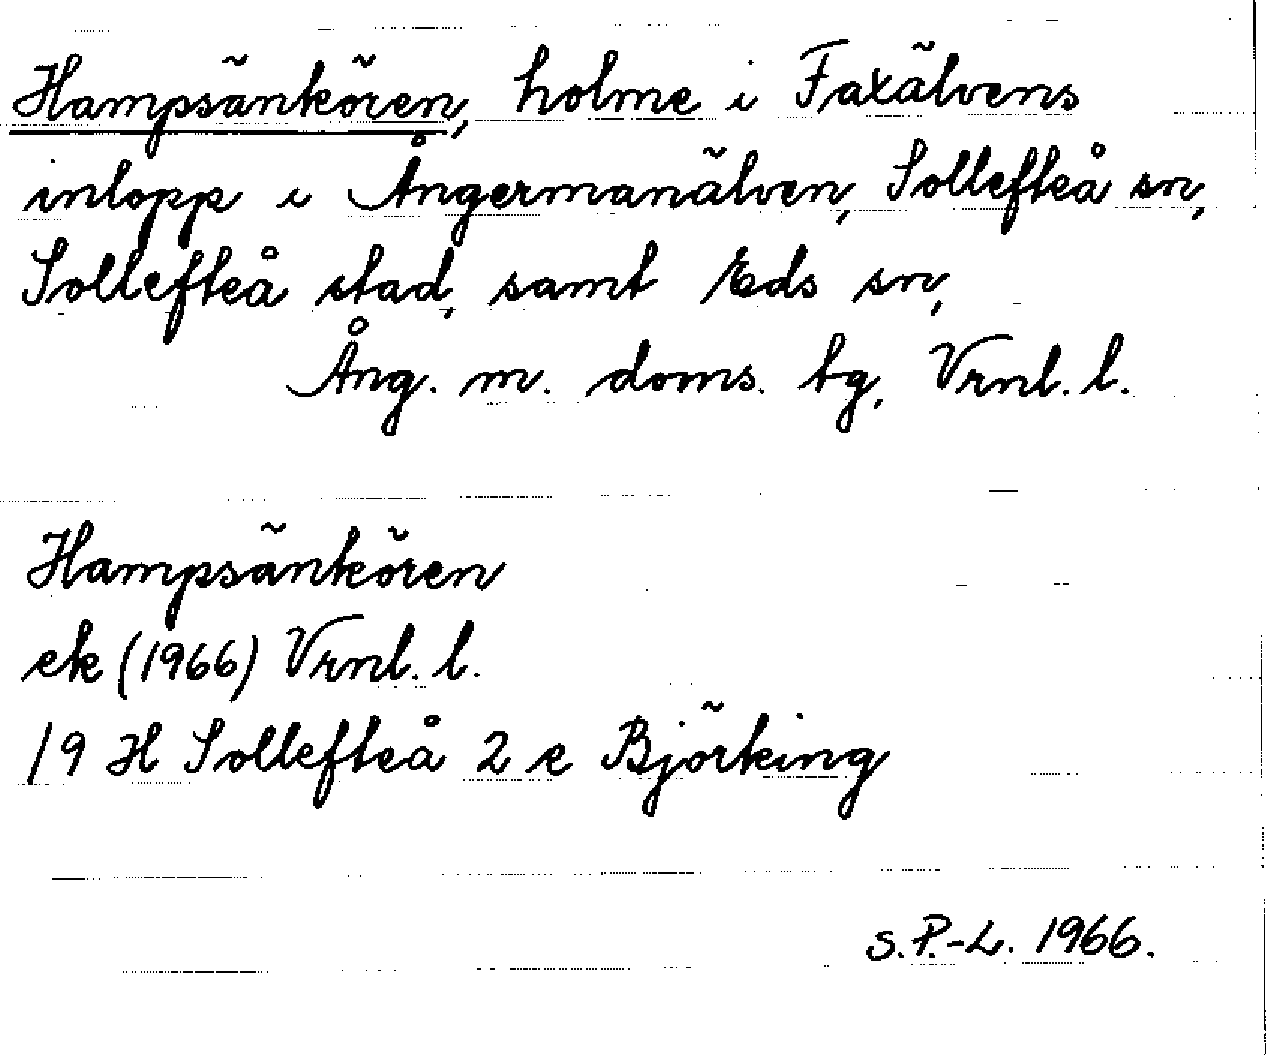 Hampsänkören, holme i Faxälvens
inlopp i Ångermanälven, Sollefteå sn,
Sollefteå stad, samt Eds sn,
Ång. m. doms. tg, Vrnl. l.
Hampsänkören
ek (1966) Vrnl. l.
19 H Sollefteå 2 e Björking
S. P.-L. 1966.